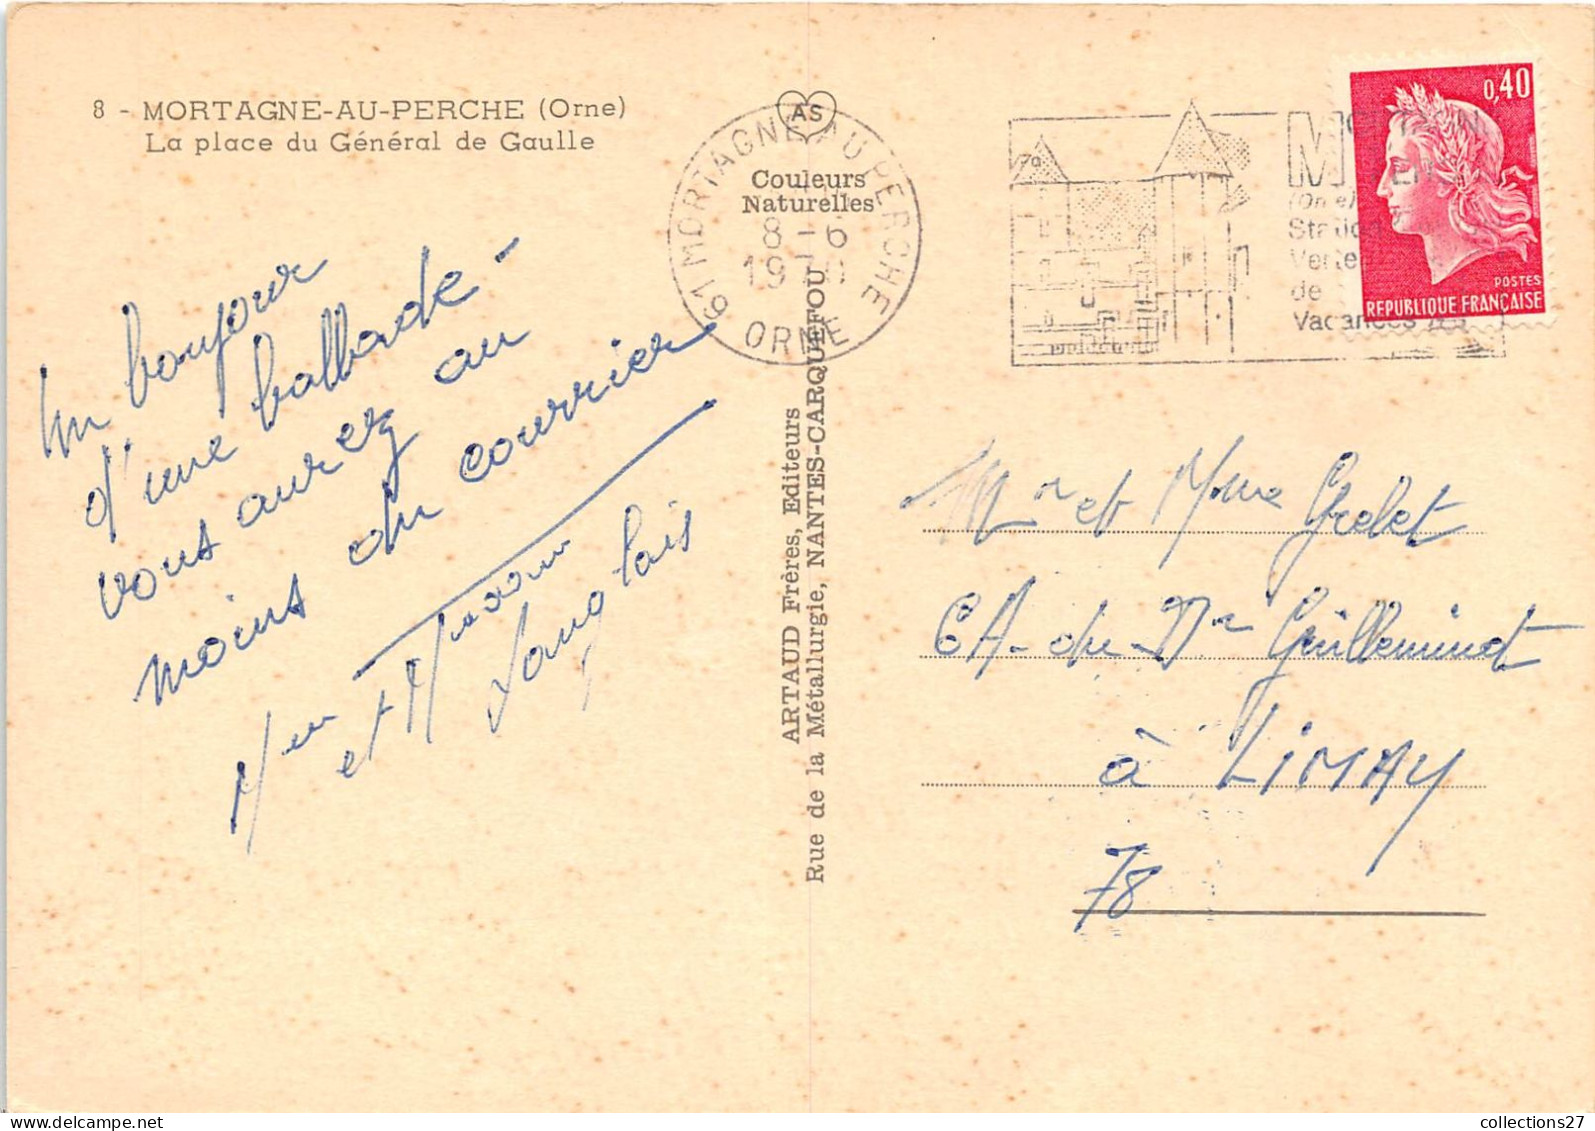 8 - MORTAGNE-AU-PERCHE (Orne)
La place du Général de Gaulle
AS
Couleurs
Naturelles
61 MORTAGNE AU PERCHE
8 - 6
19
ORNE
M
EN
(Orne)
Station
Verte
de
Vacances
0,40
POSTES
REPUBLIQUE FRANÇAISE
Un bonjour
d'une ballade -
vous aurez au
moins du courrier
et
Langlais
ARTAUD Frères, Editeurs
Rue de la Métallurgie, NANTES-CARQUEFOU
Mr et Mme Grelet
CA. du Dr Guilleminot
à LIMAY
78
collections27